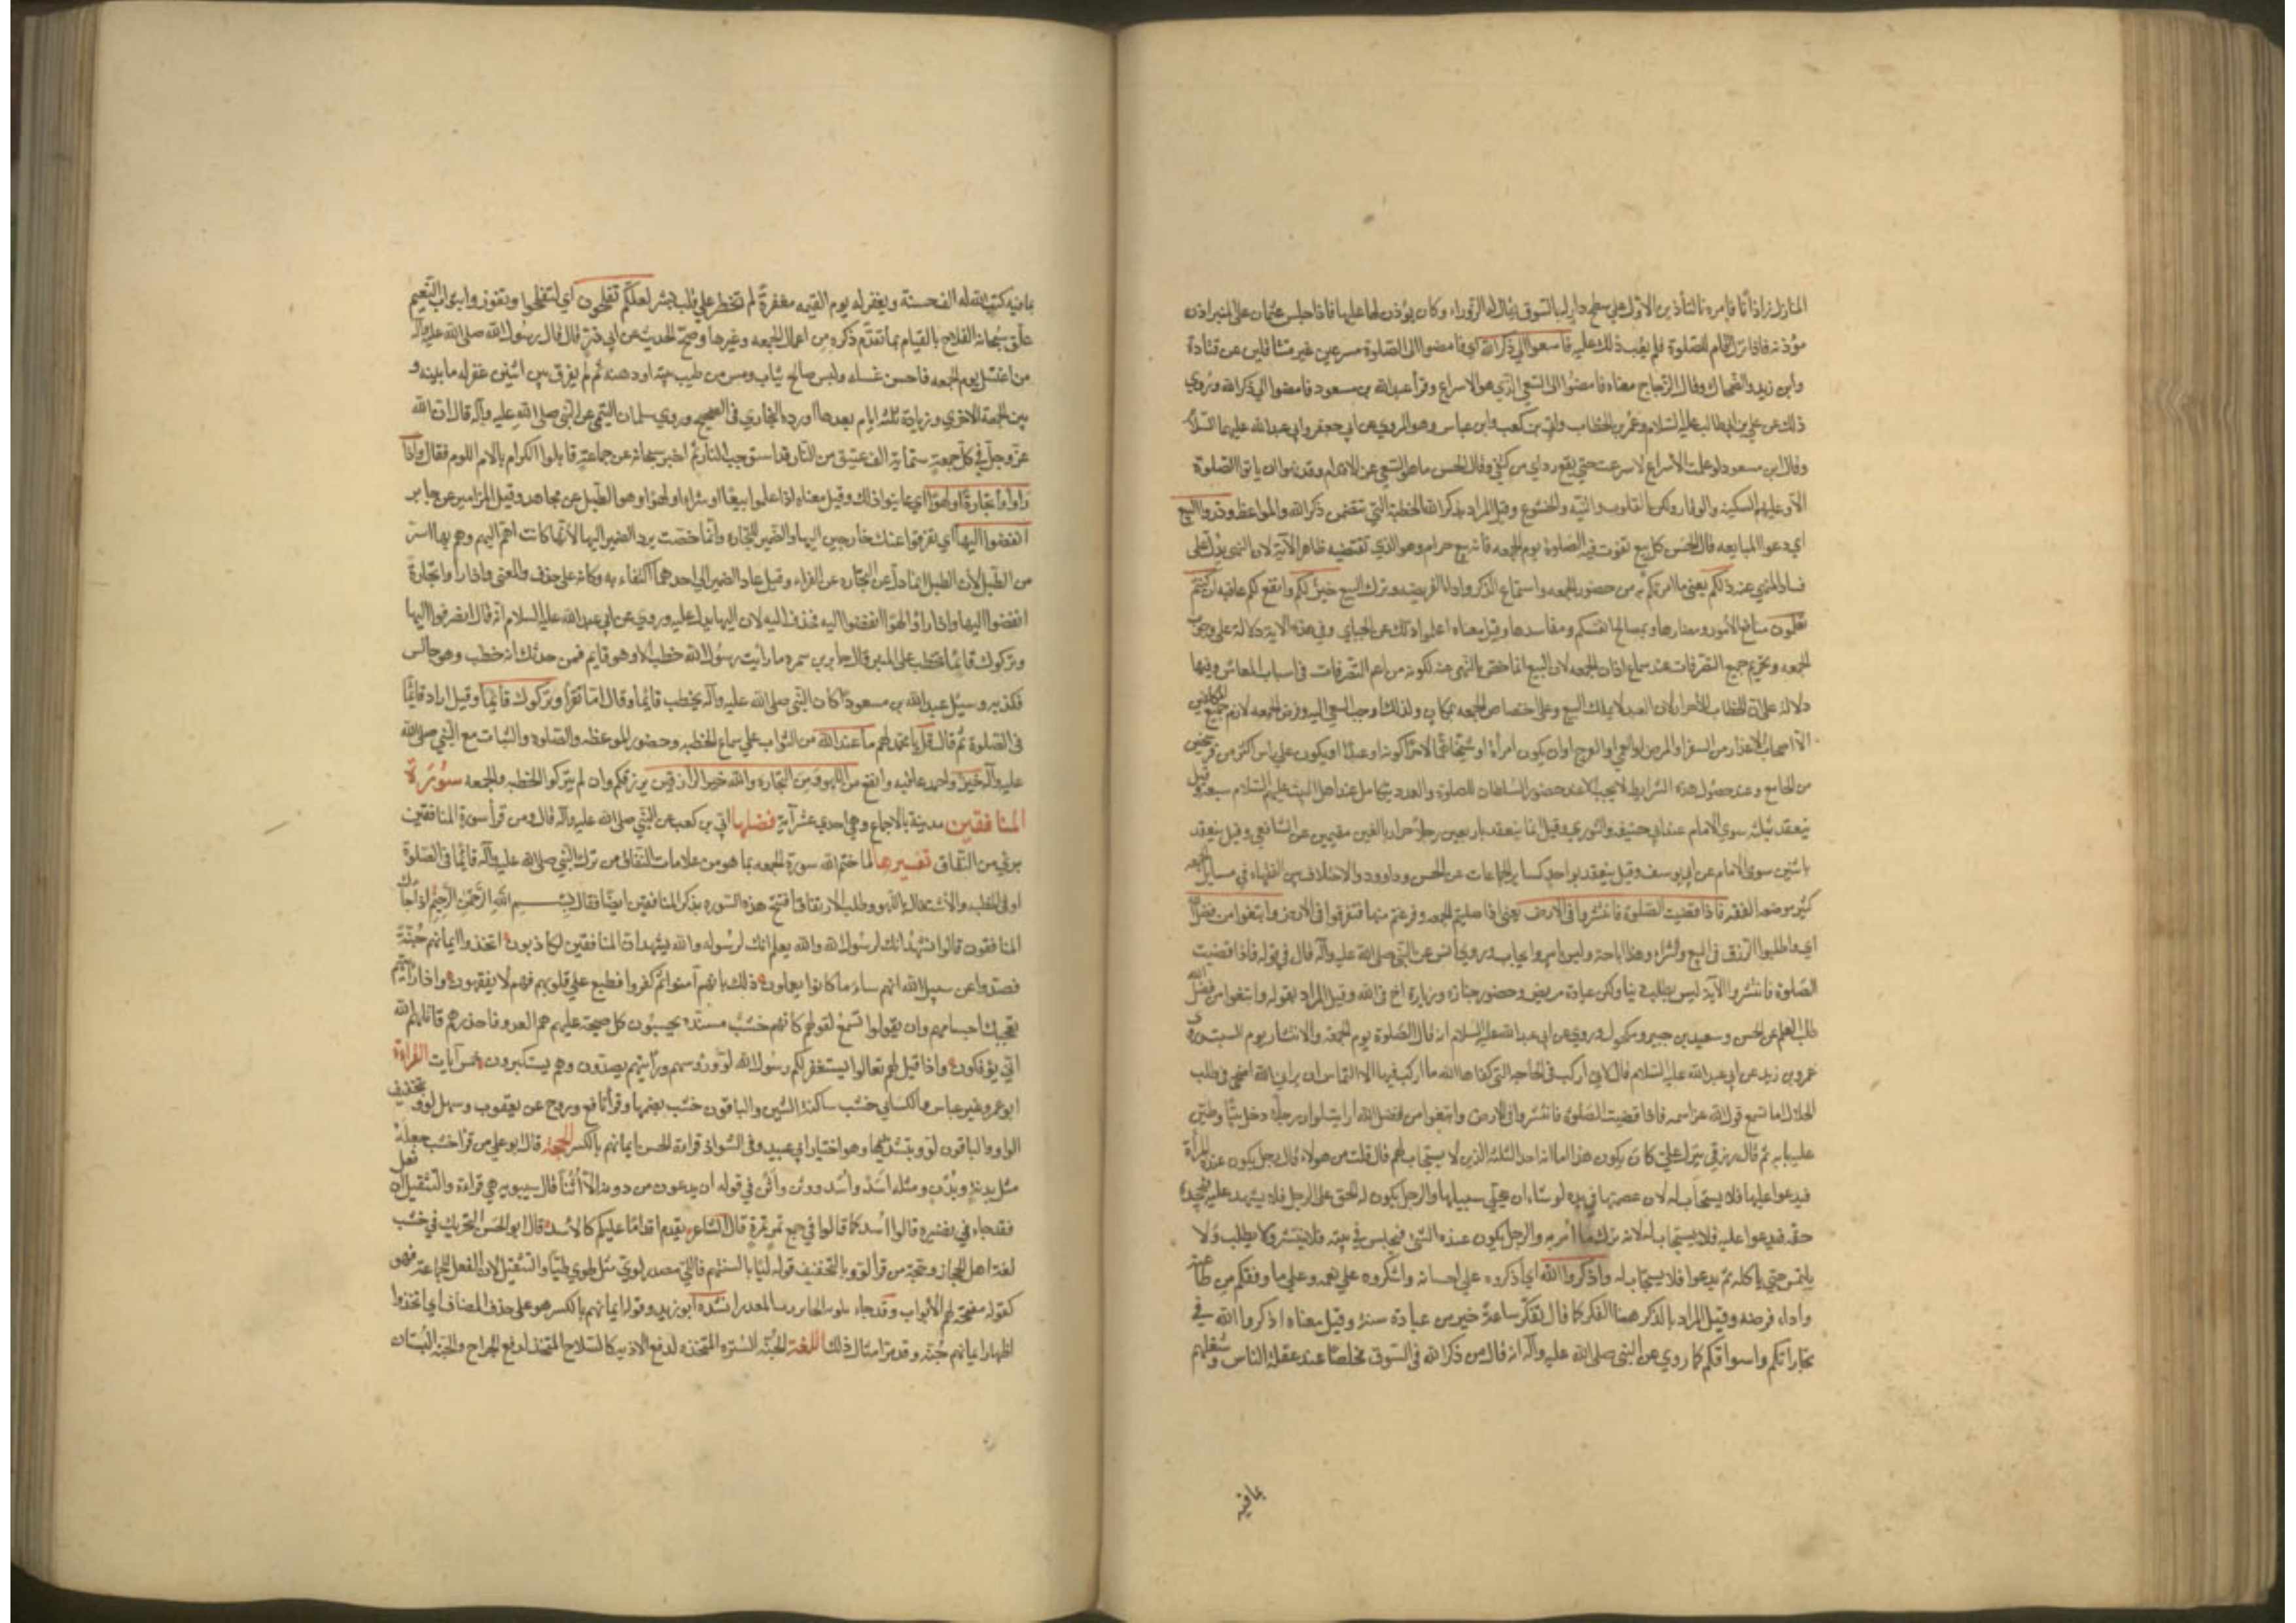 المنازل زاد اذانا فامر بالتأذين الاول على سطح دار له بالسوق يقال له الزوراء وكان يؤذن لها عليها فاذا جلس عثمان على المنبر اذن
مؤذنه فاذا نزل اقام للصلوة فلم يعب ذلك عليه فاسعوا الي ذكر الله اي فامضوا الى الصلوة مسرعين غير متثاقلين عن قتادة
وابن زيد والضحاك وقال الزجاج معناه فامضوا الى السعي الذي هو الاسراع وقرأ عبدالله بن مسعود فامضوا الي ذكر الله وروي
ذلك عن علي بن ابي طالب عليه السلام وعمر بن الخطاب وابي بن كعب وابن عباس وهو المروي عن ابي جعفر وابي عبدالله عليهما السلام
وقال ابن مسعود لو علمت الاسراع لاسرعت حتي يقع رداي من كتفي وقال الحسن ما هو السعي عن الاقدام وقد نهوا ان ياتوا الصلوة
الا وعليهم السكينه والوقار ولكن بالقلوب والنية والخشوع وقيل المراد بذكر الله الخطبة التي تتضمن ذكر الله والمواعظ وذروا البيع
اي دعوا المبايعه قال الحسن كل بيع تفوت فيه الصلوة يوم الجمعه فانه بيع حرام وهو الذي تقتضيه ظاهر الآية لان النهي يدل على
فساد المنهي عنه ذلكم يعني ما امرتكم به من حضور الجمعه واستماع الذكر واداء الفريضه وترك البيع خير لكم وانفع لكم عاقبه ان كنتم
تعلمون منافع الامور ومضارها ومصالح انفسكم ومفاسدها وقيل معناه اعلموا ذلك عن الجباي وفي هذه الاية دلالة على وجوب
الجمعه وتحريم جميع التصرفات عند سماع اذان الجمعه لان البيع انما خص بالنهي عنه لكونه من اعم التصرفات في اسباب المعاش وفيها
دلالة على ان الخطاب للأحرار لان العبد لا يملك البيع وعلى اختصاص الجمعه بمكان ولذلك اوجب السعي اليه وفرض الجمعه لازم جميع المكلفين
الا اصحاب الاعذار من السفر او المرض او العمي او العرج او ان يكون امرأة او شيخا هما لا حراك به او عبدا او يكون علي راس اكثر من فرسخين
من الجامع وعند حصول هذه الشرايط لا يجب الا عند حضور السلطان للصلوة والعدد يتكامل عند اهل البيت عليهم السلام سبعة وقيل
ينعقد بثلثه سوي الامام عند ابي حنيفه والثوري وقيل انما ينعقد باربعين رجلا احرار بالغين مقيمين عن الشافعي وقيل ينعقد
باثنين سوى الامام عن ابي يوسف وقيل ينعقد بواحد كساير الجماعات عن الحسن وداوود والاختلاف بين الفقهاء في مسايل الجمعه
كثير موضعه الفقه فاذا قضيت الصلوة فانتشروا في الارض يعني اذا صليتم الجمعه وفرغتم منها فتفرقوا في الارض وابتغوا من فضل الله
اي واطلبوا الرزق في البيع والشراء وهذا اباحة وليس بامر وايجاب وروي انس عن النبي صلى الله عليه وآله قال في قوله فاذا قضيت
الصلوة فانتشروا الآية ليس بطلب دنيا ولكن عيادة مريض وحضور جنازه وزيارة اخ في الله وقيل المراد بقوله وابتغوا من فضل الله
طلب العلم عن الحسن وسعيد بن جبير ومكحول وروي عن ابي عبدالله عليه السلام انه قال الصلوة يوم الجمعة والانتشار يوم السبت وروي
عمرو بن زيد عن ابي عبدالله عليه السلام قال اني اركب في الحاجه التي كفاها الله ما اركب فيها الا التماس ان يراني الله اضحي في طلب
الحلال اما تسمع قول الله عز اسمه فاذا قضيت الصلوة فانتشروا في الارض وابتغوا من فضل الله ارايت لو ان رجلا دخل بيتا وطين
عليه بابه ثم قال رزقي ينزل علي كان يكون هذا اما انه احد الثلثه الذين لا يستجاب لهم قال قلت من هولاء قال رجل يكون عنده المرأة
فيدعوا عليها فلا يستجاب له لان عصمتها في يده لو شاء ان يخلي سبيلها والرجل يكون له الحق على الرجل فلا يشهد عليه فيجحده
حقه فيدعوا عليه فلا يستجاب له لانه ترك ما أمر به والرجل يكون عنده الشئ فيجلس في بيته فلا ينتشر ولا يطلب ولا
يلتمس حتي ياكله ثم يدعوا فلا يستجاب له واذكروا الله اي اذكروه علي احسانه واشكروه علي نعمه وعلي ما وفقكم من طاعته
واداء فرضه وقيل المراد بالذكر هنا الفكر كما قال تفكر ساعة خير من عبادة سنة وقيل معناه اذكروا الله في
تجاراتكم واسواقكم كما روي عن النبي صلى الله عليه وآله انه قال من ذكر الله في السوق مخلصا عند غفلة الناس وشغلهم
بما فيه
بما فيه كتب الله له الف حسنة ويغفر له يوم القيمه مغفرة لم تخطر علي قلب بشر لعلكم تفلحون اي لتفلحوا وتفوزوا بثواب النعيم
علق سبحانه الفلاح بالقيام بما تقدم ذكره من اعمال الجمعه وغيرها وصح الحديث عن ابي ذر قال قال رسول الله صلى الله عليه وآله
من اغتسل يوم الجمعه فاحسن غسله ولبس صالح ثيابه ومس من طيب بيته او دهنه ثم لم يفرق بين اثنين غفر له ما بينه و
بين الجمعة الاخري وزيادة ثلثة ايام بعدها اورده البخاري في الصحيح وروي سلمان التيمي عن النبي صلى الله عليه وآله قال ان الله
عز وجل في كل جمعة ستمأية الف عتيق من النار قد استوجب النار ثم اخبر سبحانه عن جماعة قابلوا اكرم الكرام بالأم اللوم فقال واذا
راوا تجارة او لهوا اي عاينوا ذلك وقيل معناه اذا علموا بيعا او شراء او لهوا وهو الطبل عن مجاهد وقيل المزامير عن جابر
انفضوا اليها اي تفرقوا عنك خارجين اليها والضمير للتجارة وانما خصت برد الضمير اليها لانها كانت اهم اليهم وهم بها اسر
من الطبل لان الطبل انما دل عن التجارة عن الفراء وقيل عاد الضمير الى احدهما اكتفاء به وكانه على حذف والمعنى واذا راوا تجارة
انفضوا اليها واذا راوا لهوا انفضوا اليه فحذف اليه لان اليها يدل عليه وروي عن ابي عبدالله عليه السلام انه قال انصرفوا اليها
وتركوك قايما تخطب على المنبر قال جابر بن سمره ما رايت رسول الله خطب الا وهو قايم فمن حدثك انه خطب وهو جالس
فكذبه وسيل عبدالله بن مسعود اكان النبي صلى الله عليه وآله يخطب قائما وقال اما تقرأ وتركوك قائما وقيل اراد قائما
في الصلوة ثم قال قل يا محمد لهم ما عند الله من الثواب علي سماع الخطبه وحضور الموعظه والصلوه والثبات مع النبي صلى الله
عليه وآله خير واحمد عاقبه وانفع من اللهو ومن التجارة والله خير الرازقين يرزقكم وان لم يتركوا الخطبه والجمعه سورة
المنافقين مدينة بالاجماع وهي احدي عشر آية فضلها ابي بن كعب عن النبي صلى الله عليه وآله قال ومن قرأ سورة المنافقين
بري من النفاق تفسيرها لما ختم الله سورة الجمعه بما هو من علامات النفاق من ترك النبي صلى الله عليه وآله قائما في الصلوة
او في الخطبه والاشتغال باللهو وطلب الارتفاق افتتح هذه السوره بذكر المنافقين ايضا فقال بسم الله الرحمن الرحيم اذا جاءك
المنافقون قالوا نشهد انك لرسول الله والله يعلم انك لرسوله والله يشهد ان المنافقين لكاذبون اتخذوا ايمانهم جنة
فصدوا عن سبيل الله انهم ساء ما كانوا يعملون ذلك بانهم آمنوا ثم كفروا فطبع علي قلوبهم فهم لا يفقهون واذا رايتهم
تعجبك اجسامهم وان يقولوا تسمع لقولهم كانهم خشب مسندة يحسبون كل صيحة عليهم هم العدو فاحذرهم قاتلهم الله
اني يؤفكون واذا قيل لهم تعالوا يستغفر لكم رسول الله لووا رؤسهم ورايتهم يصدون وهم يستكبرون خمس آيات القراءة
ابو عمرو غير عباس والكسائي خشب ساكنة الشين والباقون خشب بضمها وقرأ نافع وروح عن يعقوب وسهل لووا بتخفيف
الواو والباقون لووا بتشديدها وهو اختيار ابي عبيد وفي الشواذ قراءة الحسن ايمانهم بالكسر الحجة قال ابو علي من قرأ خشب جعله
مثل بدنة وبدن ومثله اسد وأسد ووثن وأثن في قوله ان يدعون من دونه الا أثنا قال سيبويه هي قراءة والتثقيل ان فعل
فقد جاء في نضيره قالوا أسد كما قالوا في جمع نمر نمر قال الشاعر يقدم اقداما عليكم كالاسد قال ابو الحسن التحريك في خشب
لغة اهل الحجاز وحجة من قرأ لووا بالتخفيف قوله ليا بالسنتهم فاللي مصدر لوي مثل طوي طيا والتثقيل لان الفعل للجماعة فهو
كقوله مفتحة لهم الأبواب وقد جاء انشده ابو زيد وقوله ايمانهم بالكسر هو على حذف المضاف اي اتخذوا
اظهار ايمانهم جنة وقد مر امثال ذلك اللغة الجنة السترة المتخذه لدفع الاذيه كالسلاح المتخذ لدفع الجراح والجنة البستان